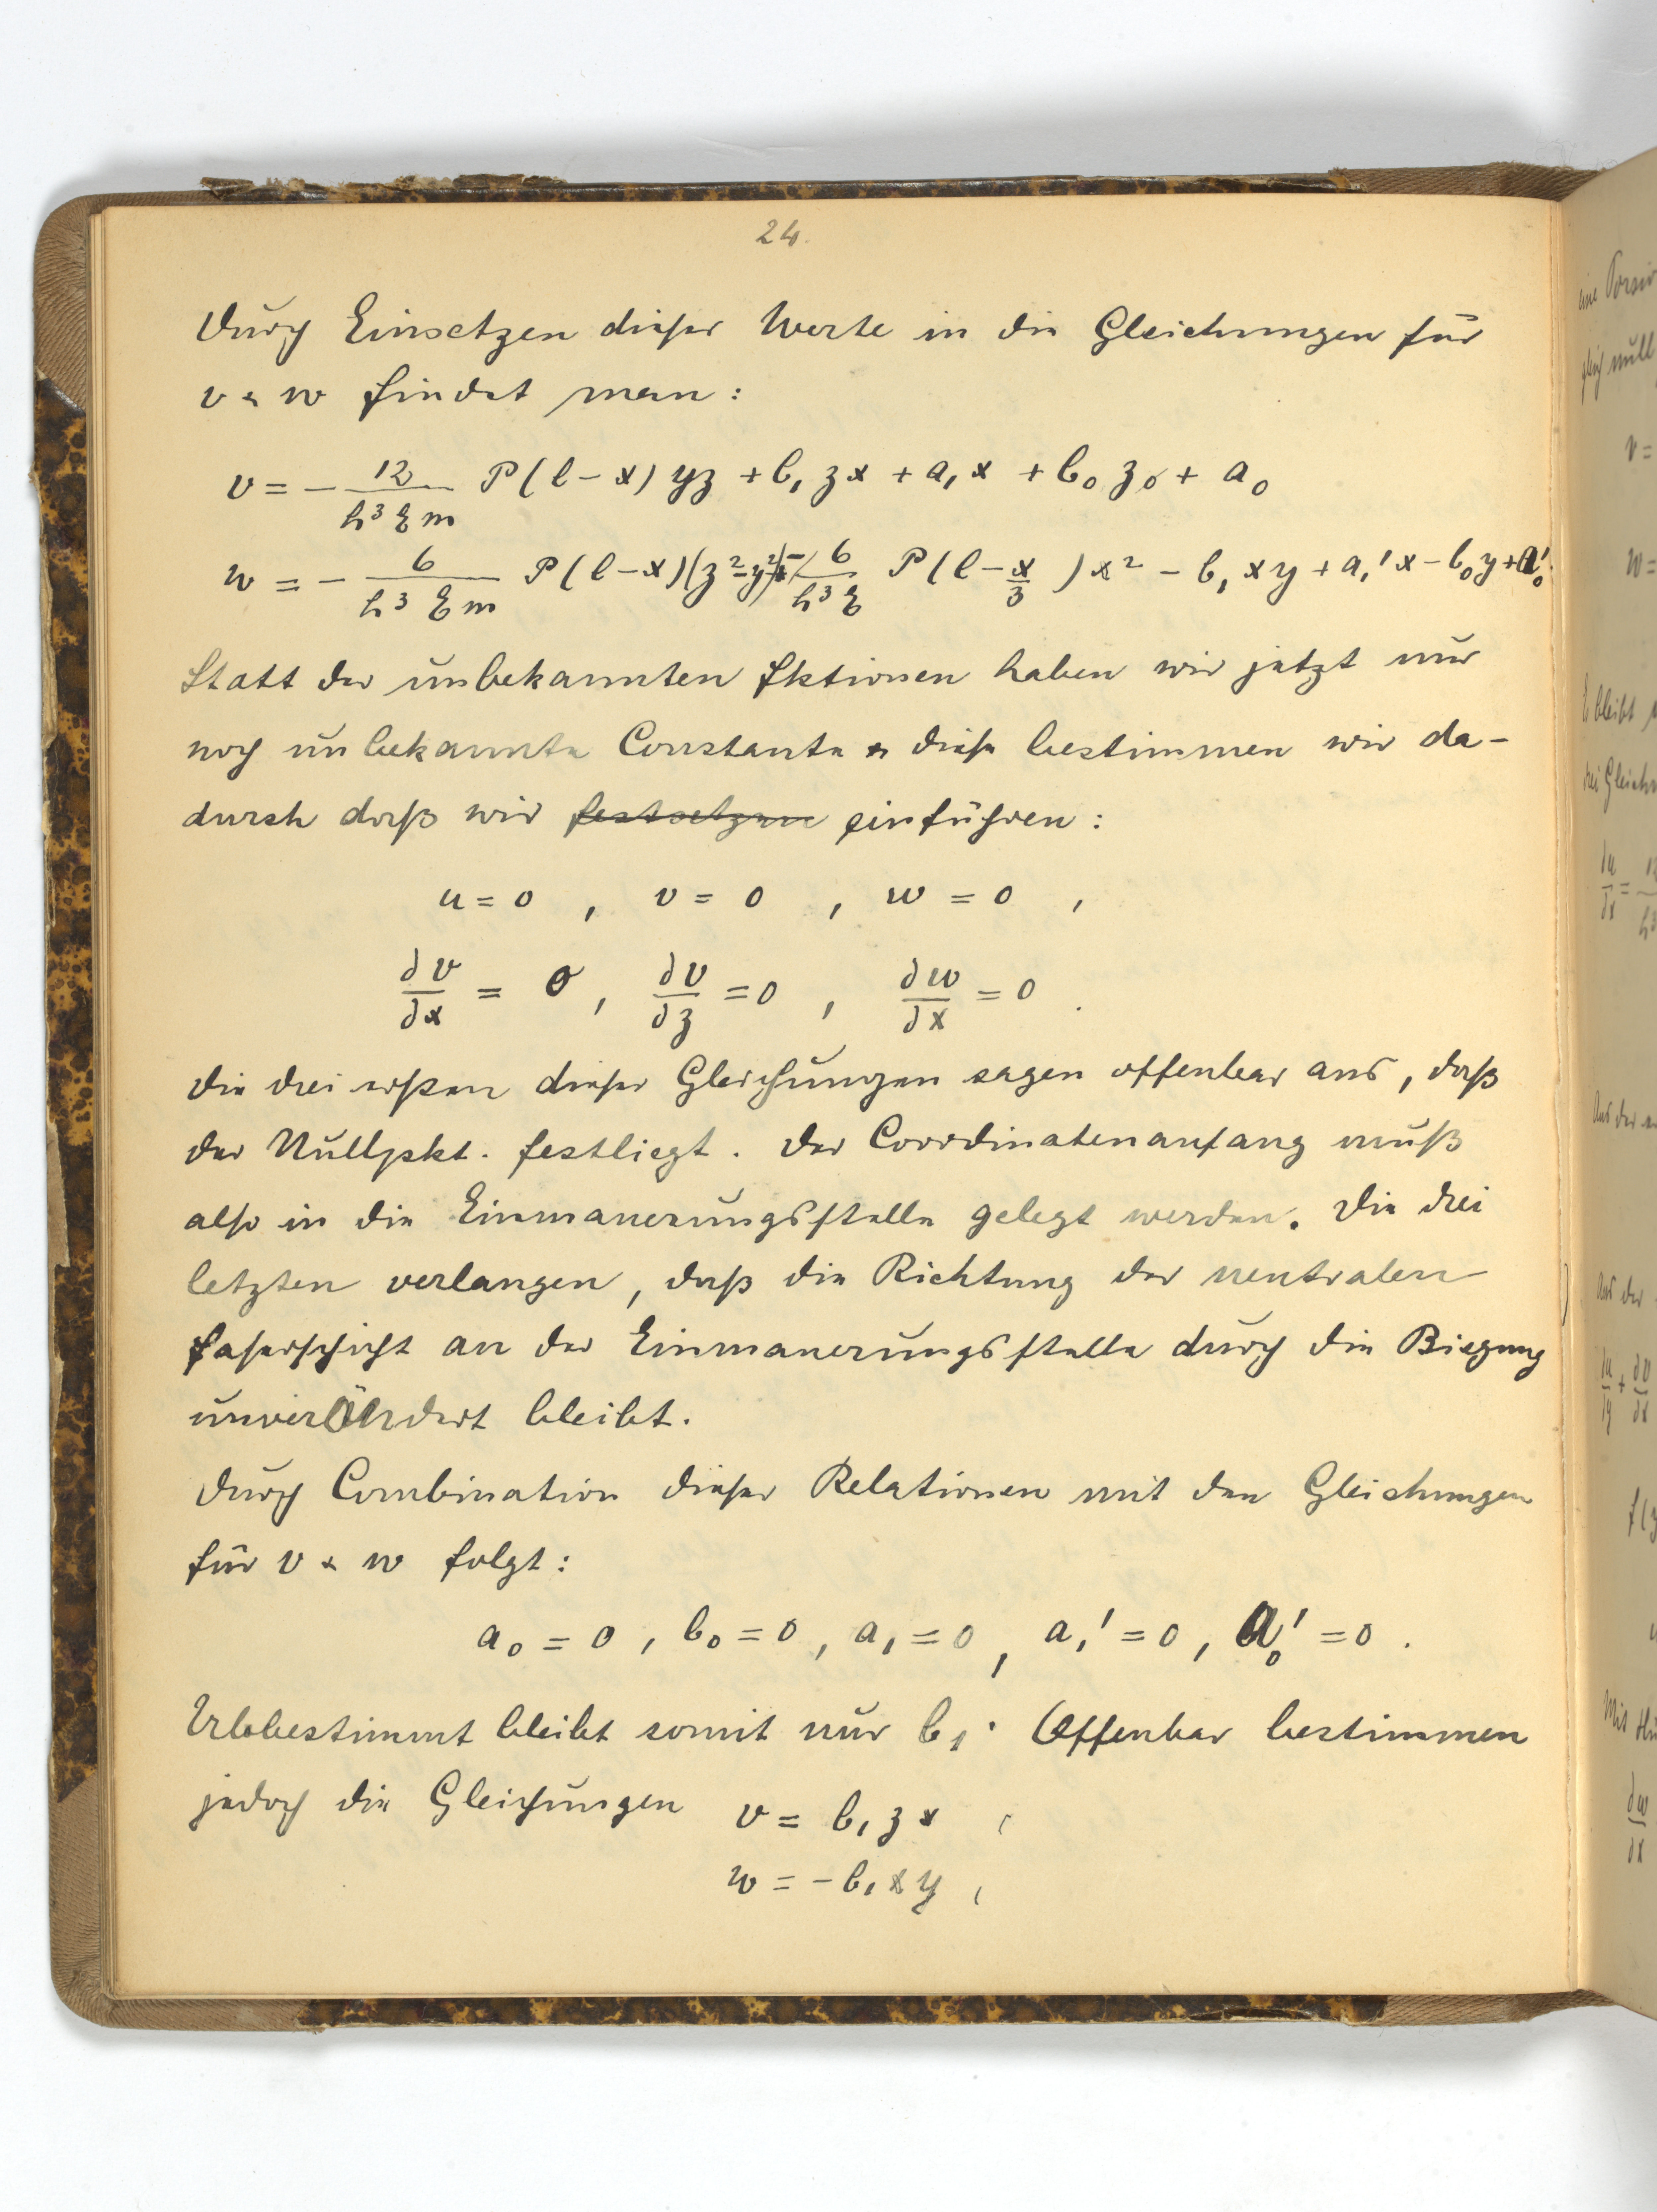 24.
Durch Einsetzen dieser Werte in die Gleichungen für
v & w findet man:
v = - 12/(h³ E m) P(l-x) yz + b₁ zx + a₁ x + b₀ z + a₀
w = - 6/(h³ E m) P(l-x)(z²-y²) - 6/(h³ E) P(l - x/3) x² - b₁ xy + a₁' x - b₀ y + a₀'
Statt der unbekannten Fktionen haben wir jetzt nur
noch unbekannte Constante & diese bestimmen wir da-
durch daß wir festsetzen einführen:
u = 0 , v = 0 , w = 0 ,
∂v/∂x = 0 , ∂v/∂z = 0 , ∂w/∂x = 0 .
Die drei ersten dieser Gleichungen sagen offenbar aus, daß
der Nullpkt. festliegt. Der Coordinatenanfang muß
also in die Einmauerungsstelle gelegt werden. Die drei
letzten verlangen, daß die Richtung der neutralen
Faserschicht an der Einmauerungsstelle durch die Biegung
unverändert bleibt.
Durch Combination dieser Relationen mit den Gleichungen
für v & w folgt:
a₀ = 0 , b₀ = 0 , a₁ = 0 , a₁' = 0 , a₀' = 0 .
bleibt somit nur b₁. Offenbar bestimmen
jedoch die Gleichungen v = b₁ z x ,
w = - b₁ x y ,
eine
gleich null
v =
w =
Es bleibt
drei Gleich
Aus der
Aus der